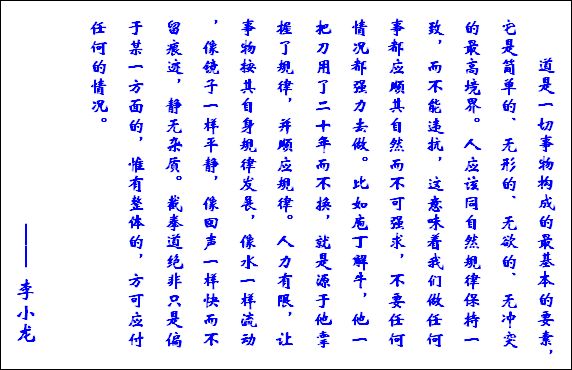 道是一切事物构成的最基本的要素，
它是简单的、无形的、无欲的、无冲突
的最高境界。人应该同自然规律保持一
致，而不能违抗，这意味着我们做任何
事都应顺其自然而不可强求，不要任何
情况都强力去做。比如庖丁解牛，他一
把刀用了二十年而不换，就是源于他掌
握了规律，并顺应规律。人力有限，让
事物按其自身规律发展，像水一样流动
，像镜子一样平静，像回声一样快而不
留痕迹，静无杂质。截拳道绝非只是偏
于某一方面的，惟有整体的，方可应付
任何的情况。
——李小龙